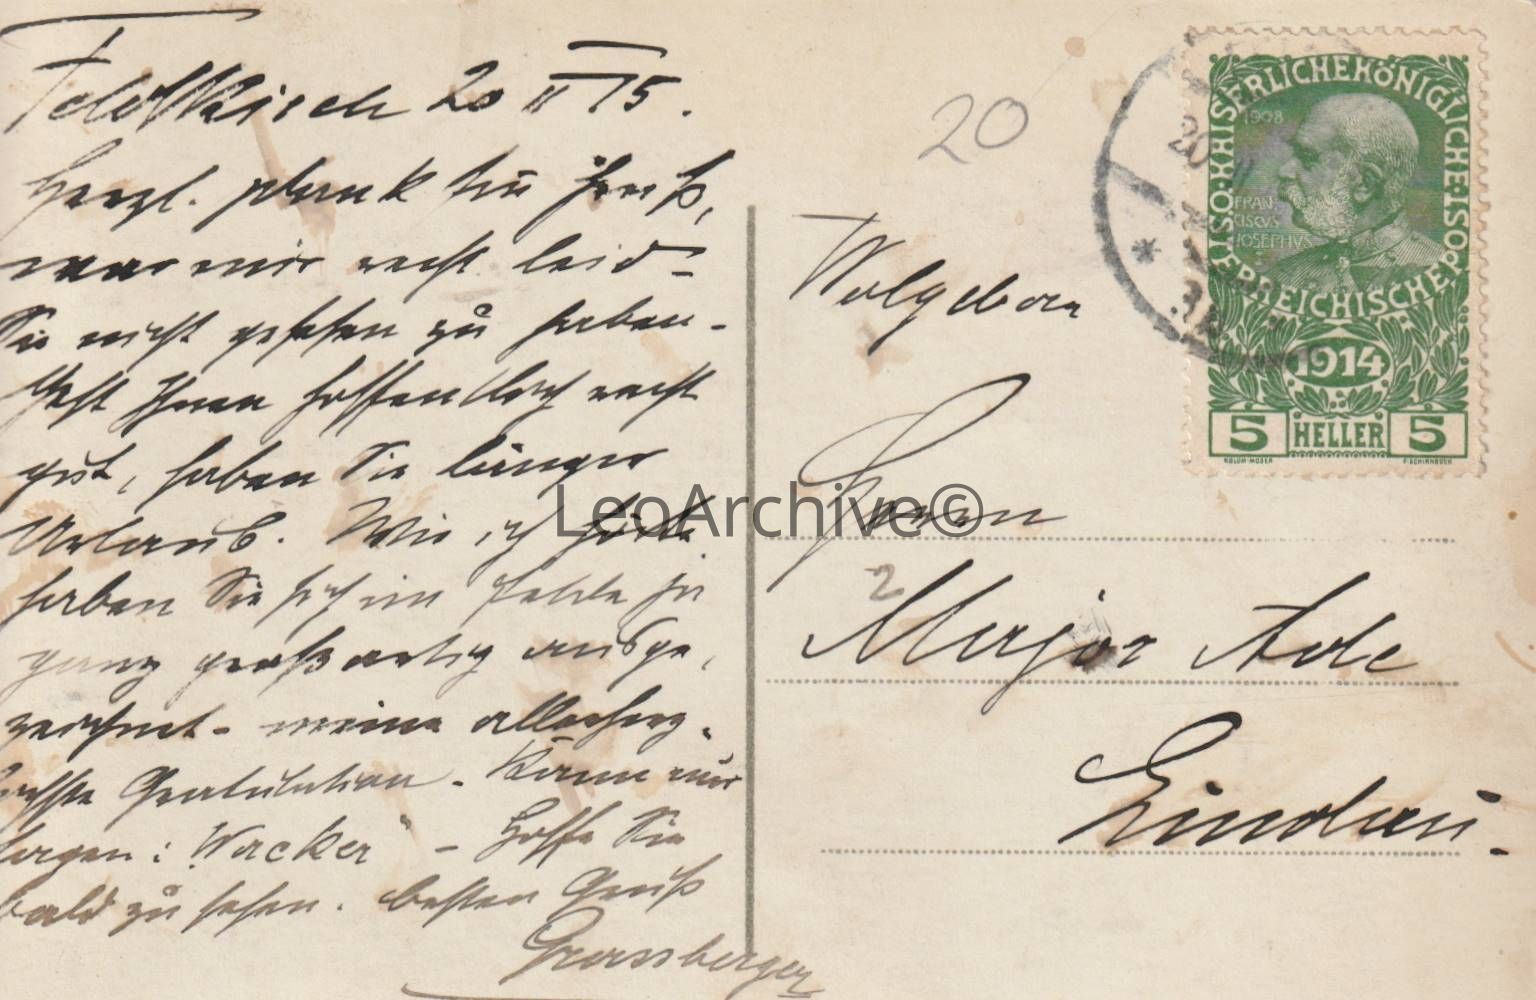 Feldkirch 20 II 15.
Herzl. Dank für Gruß,
war mir recht leid –
Sie nicht gesehen zu haben.
Geht Ihnen hoffendlich recht
gut, haben Sie länger
Urlaub. Wie ich hörte
haben Sie sich im Felde ja
ganz großartig ausge-
zeichnet – meine allerherz-
lichste Gratulation. Kann nur
sagen: „Wacker“ – Hoffe Sie
bald zu sehen. besten Gruß
Grassberger
20
Wolgeborn
Herrn
2
Major Ade
Lindau.
KAISERLICHE KÖNIGLICHE ÖSTERREICHISCHE POST
1908
FRAN
CISCVS
IOSEPHVS
1914
5 HELLER 5
KOLOM·MOSER F·SCHIRNBÖCK
20
LeoArchive©